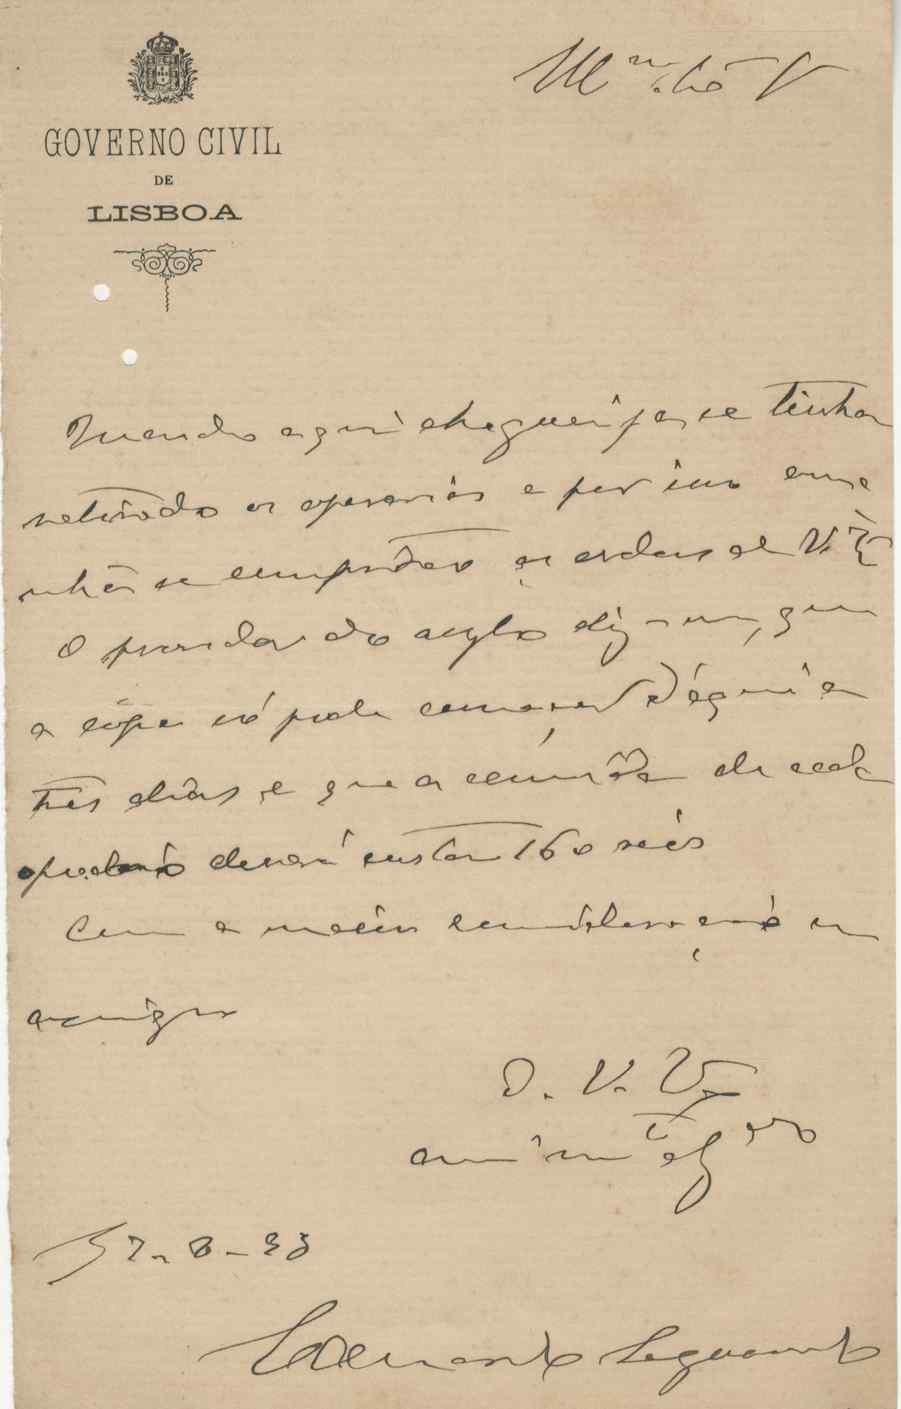 GOVERNO CIVIL
DE
LISBOA
Quando aqui cheguei já se tinham
retirado os operarios e por isso ama
nhã se cumprirão as ordens de V. Exª
O provedor do asylo diz-me, que
a sôpa só pode começar d'aqui a
tres dias e que a comida de cada
operario deverá custar 160 réis
Com a maior consideração me
assigno
D. V. Exª
am.º m.to obg.do
Segurado